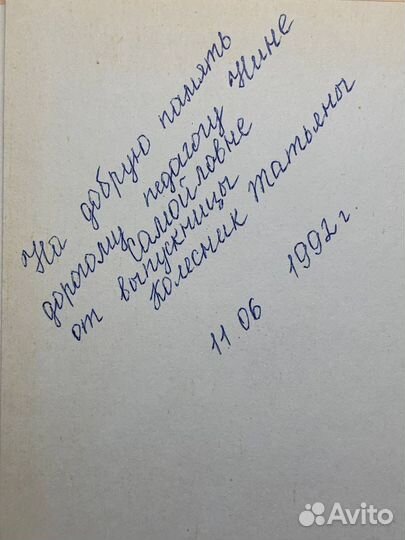 На добрую память
дорогому педагогу Нине
Самойловне
от выпускницы
Колесник Татьяны
11.06 1992 г.
Avito